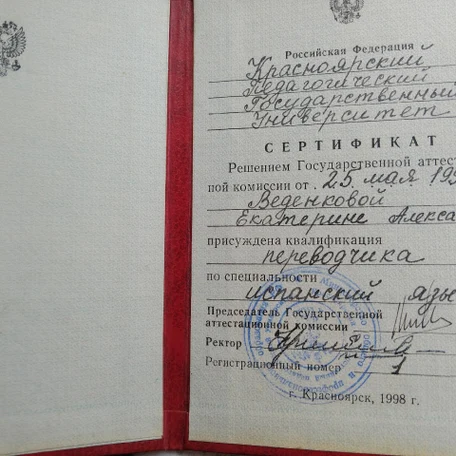 Российская Федерация
Красноярский
Педагогический
Государственный
Университет
СЕРТИФИКАТ
Решением Государственной аттест
ной комиссии от 25 мая 199
Веденковой
Екатерине Алекса
присуждена квалификация
переводчика
по специальности
испанский язы
Председатель Государственной
аттестационной комиссии
Ректор
Регистрационный номер 1
г. Красноярск, 1998 г.